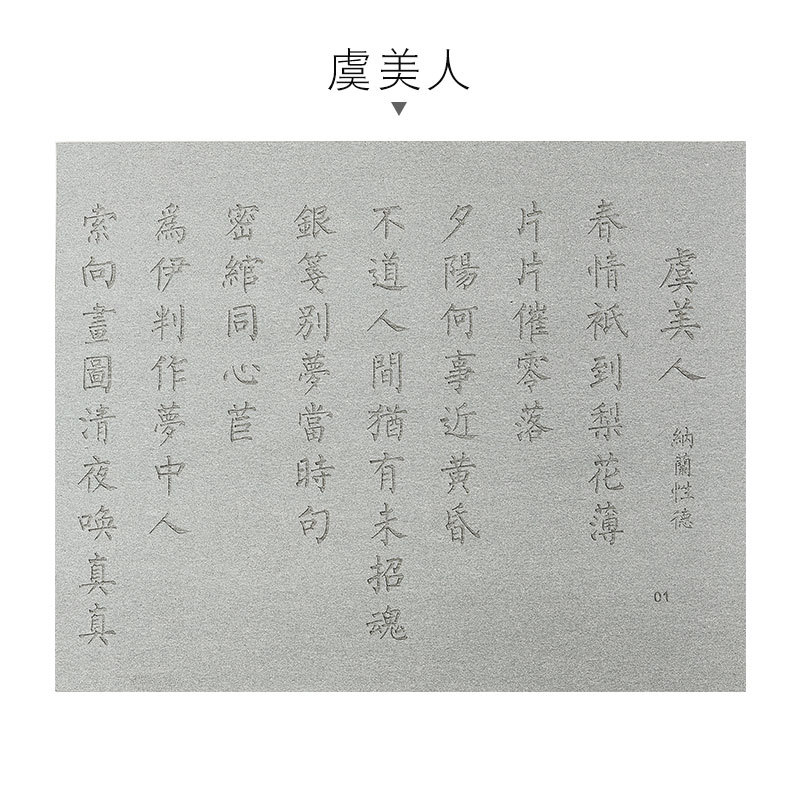 虞美人
虞美人
納蘭性德
01
春情衹到梨花薄
片片催零落
夕陽何事近黄昏
不道人間猶有未招魂
銀箋別夢當時句
密綰同心苣
為伊判作夢中人
索向畫圖清夜喚真真